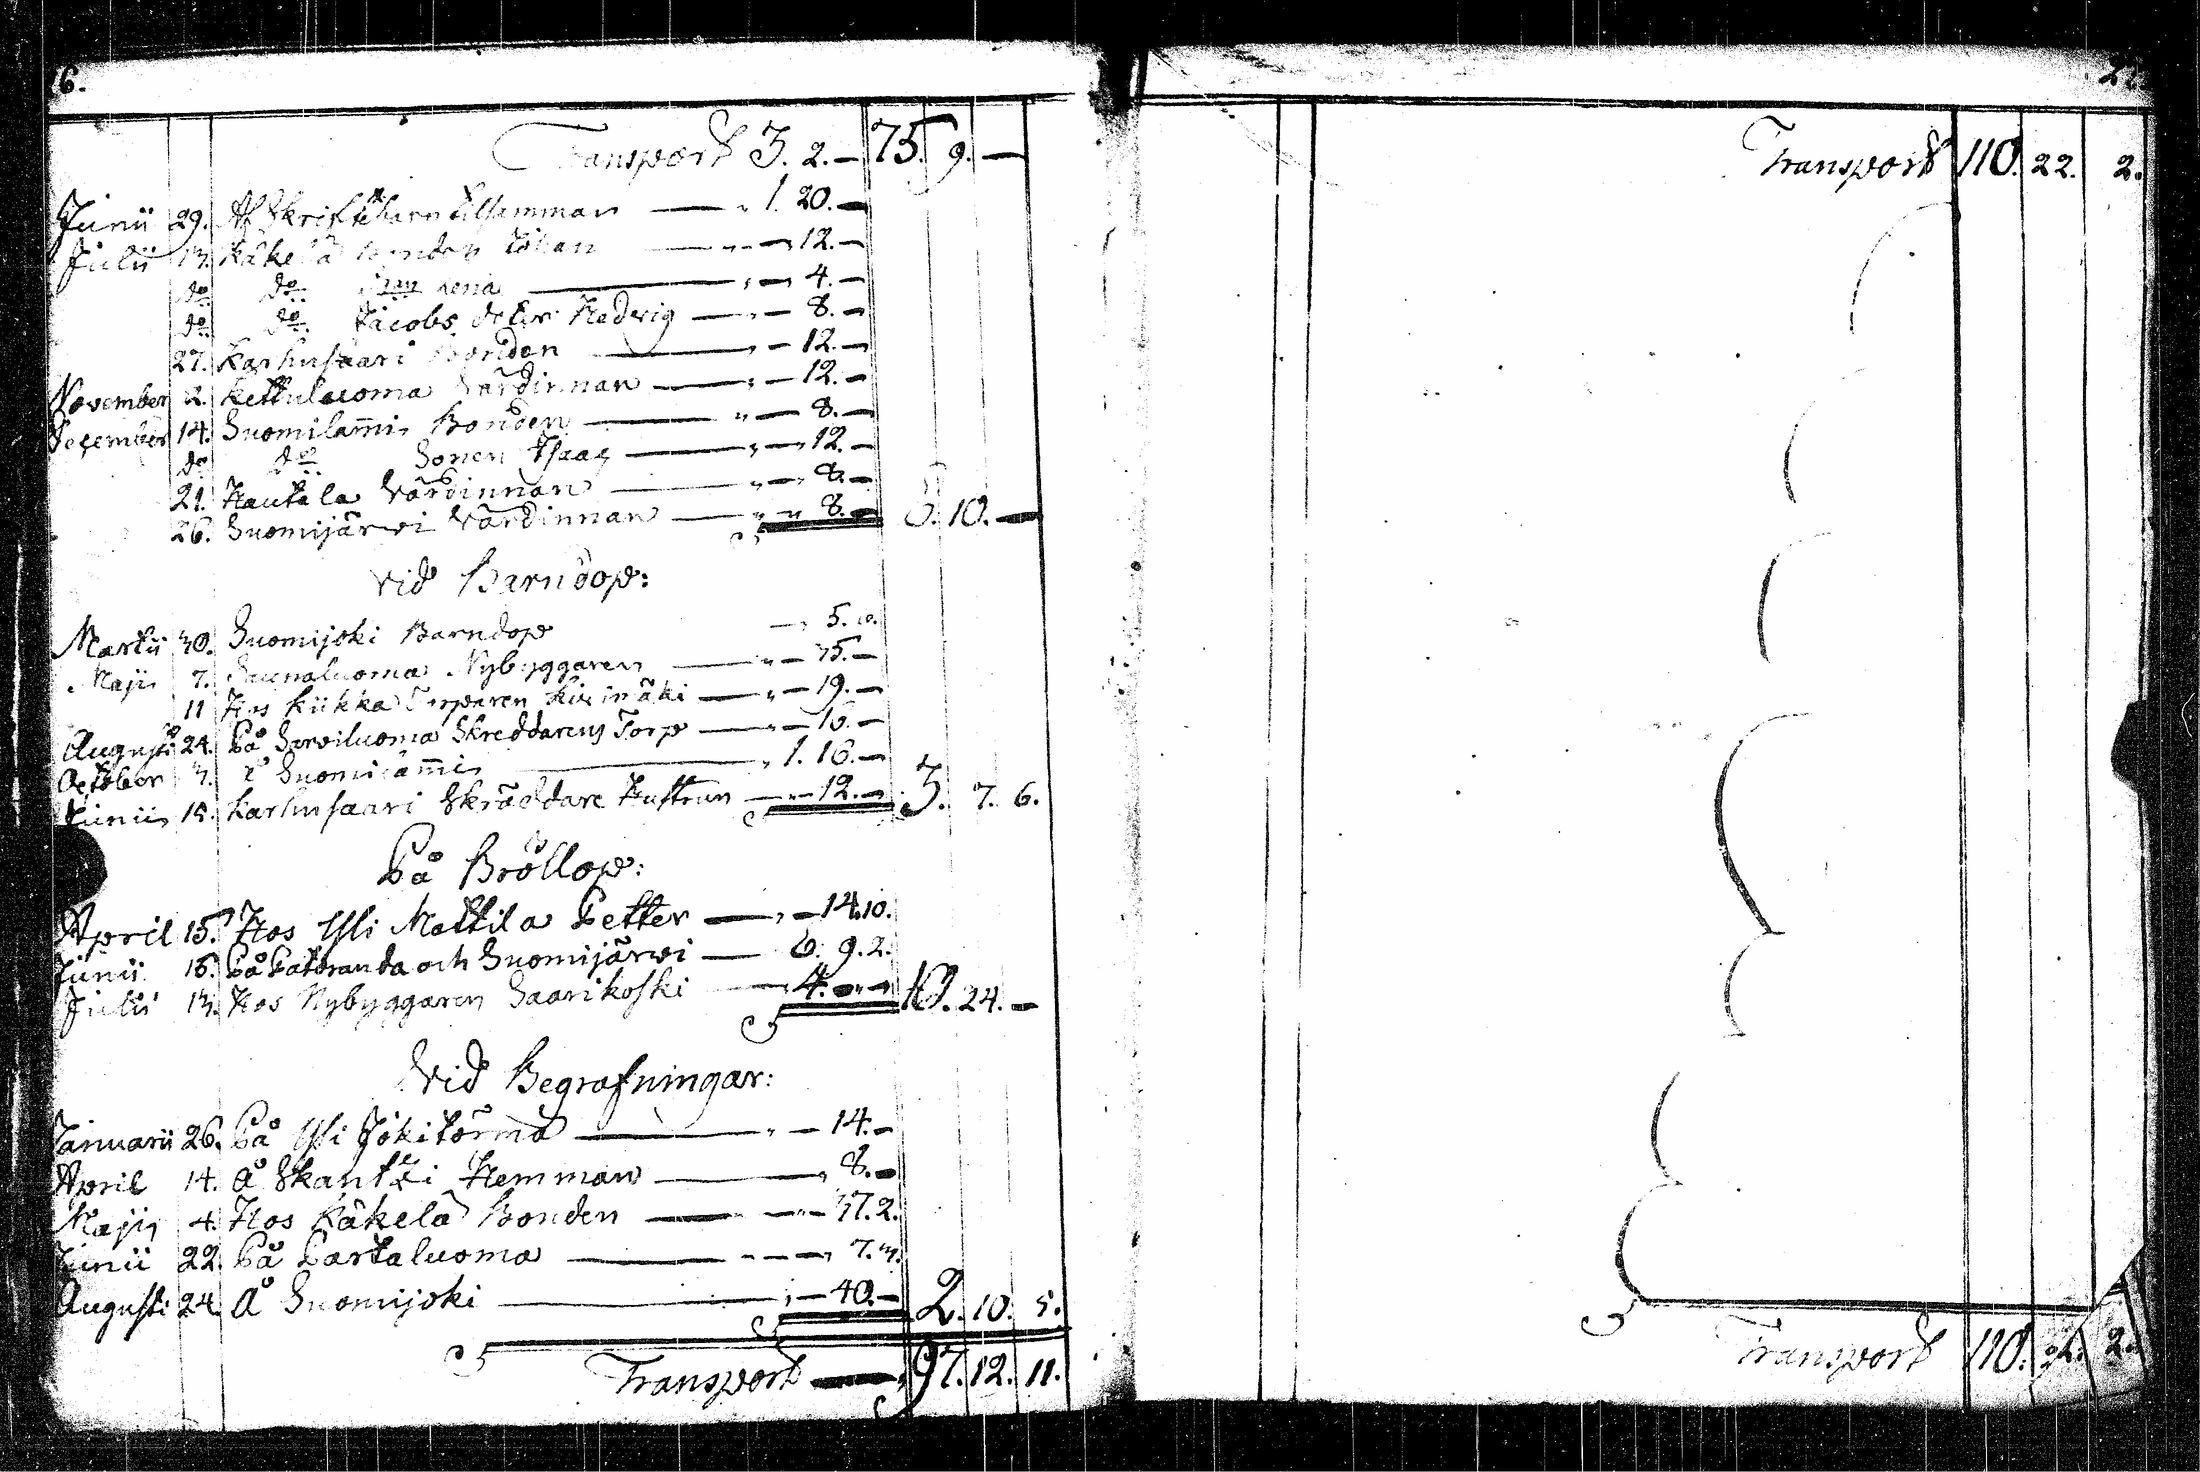 6.
Transport 3. 2.— 75. 9. —
Junii 29. Af Skriftebarn tilsamman — „ 1. 20.—
Julii 13. Käkelä bonden Johan — „ — 12.—
do do Lena — „ — 4.—
do do Jacobs doter Hedvig — „ — 8.—
27. Karhusaari Bonden — „ — 12.—
November 2. Kettuluoma Värdinnan — „ — 12.—
December 14. Suomilam̄i Bonden — „ — 8.—
do do Sonen Isaac — „ — 12.—
21. Hautala Värdinnan — „ — 8.—
26. Suomijärvi Värdinnan — „ „ 8.— 10.—
vid Barndop:
Martii 30. Suomijoki Barndop — 5.
Maji 7. Saunaluoma Nybyggaren — „ — 15.—
11 Hos Kiikka Torparen — „ — 19.—
Augusti 24. På Sarviluoma Skreddarens Torp — „ — 16.—
October 3. å Suomilam̄i — „ 1. 16.—
Junii 15. Karhusaari Skräddare Hustrun — „ — 12.— 3. 7. 6.
På Bröllop:
April 15. Hos Yli Mattila Petter — „ — 14. 10.
Junii 16. På Patoranta och Suomijärvi — 6. 9. 2.
Julii 13. Hos Nybyggaren Saarikoski — 4. — 10. 24.—
Vid Begrafningar:
Januarii 26. På Yli Jokitörmä — „ — 14.—
April 14. å Skantzi Hemman — „ 8.—
Maji 4. Hos Käkelä Bonden — „ — 37. 2.
Junii 22. På Partaluoma — — 7. 3.
Augusti 24. å Suomijoki — „ — 40.— 2. 10. 5.
Transport — 97. 12. 11.
Transport 110. 22. 2.
Transport 110. 22. 2.